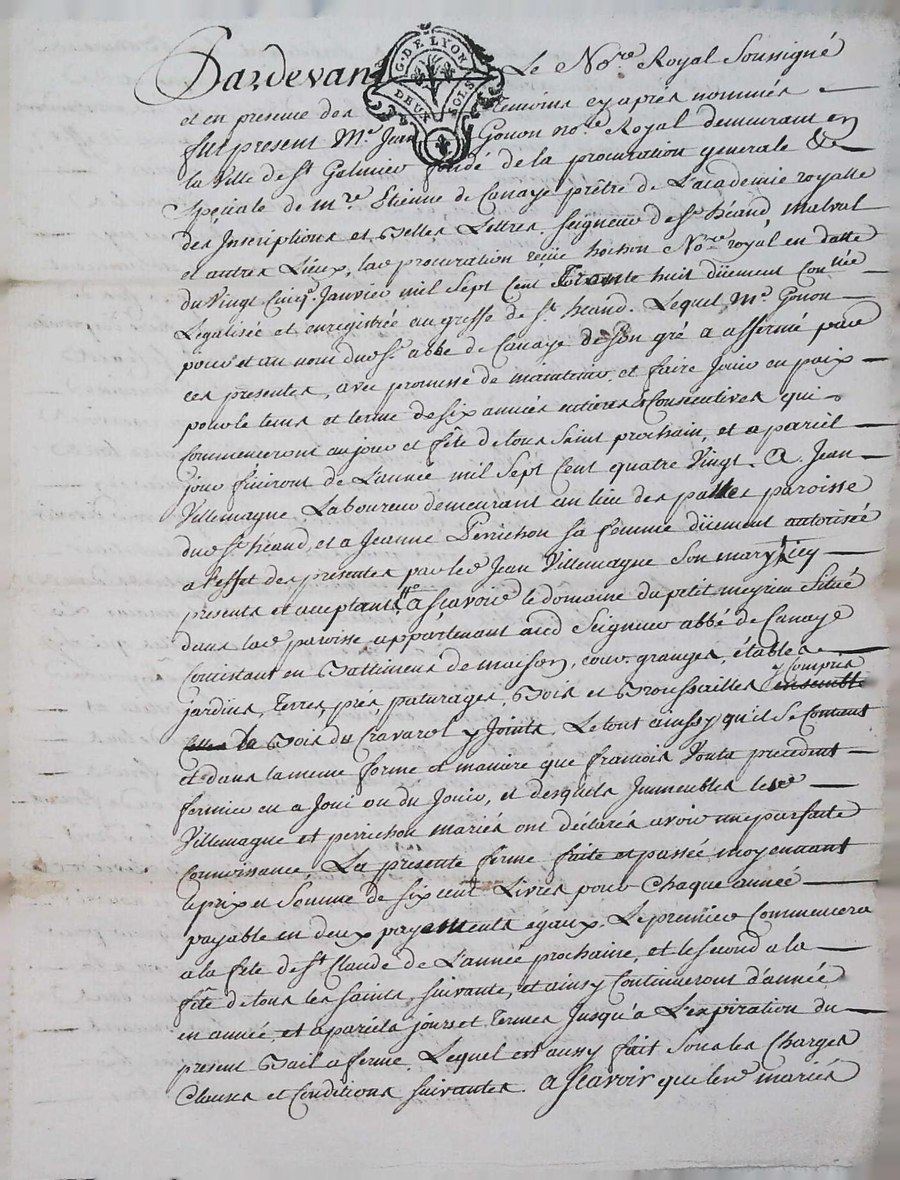 Pardevant Le No.re Royal Soussigné
G. DE LYON
DEUX SOLS
et en presence des temoins cy après nommés
fut present M.e Jean Gonon no.re Royal demeurant en
la Ville de S.t Galmier fondé de la procuration generale &
speciale de m.re Etienne de Canaye prêtre de L'academie royalle
des Inscriptions et Belles Lettres, seigneur de S.t héand, Malval
et autres Lieux, lad.e procuration reçüe hoihon No.re royal en datte
du Vingt Cinq Janvier mil Sept Cent Trente huit düement Con.lée
Legalisée et enregistrée au greffe de S.t héand. Lequel M.e Gonon
pour et au nom dud S.r abbé de Canaye de Son gré a affermé par
ces presentes, avec promesse de maintenir et faire Jouir en paix
pour le tems et terme de six années entieres & Consecutives qui
commenceront au jour et fête de tous Saint prochain, et a pareil
jour finiront de L'année mil Sept Cent quatre Vingt. A Jean
Villemagne Laboureur demeurant au lieu des paroisse
dud S.t héand, et a Jeanne Perrichon sa femme düement autorisée
a l'effet des presentes par led Jean Villemagne Son mary icy
presents et acceptants a Scavoir le domaine du petit meyrieu Situé
dans lad.e paroisse appartenant aud Seigneur abbé de Canaye
Consistant en Battimens de maison, cour, granges, étables
jardins, Terres, prés, paturages, Bois et Broussailles y compris ensemble
Bois du Cravarol y Joints. Le tout ainssy qu'il Se Contient
et dans la meme forme et maniere que francois Vouta precedent
fermier en a Joui ou du Jouir, et desquels Immeubles lesd
Villemagne et perrichon mariés ont déclarés avoir une parfaite
Connoissance, La presente ferme faite et passée moyennant
le prix et Somme de six cent Livres pour Chaque année
payable en deux payements egaux. Le premier Commencera
a la fete de S.t Claude de L'année prochaine, et le second a la
fête de tous les saints, suivante, et ainsy Continueront d'année
en année et a pareils jours et Termes Jusqu'a L'expiration du
present Bail a ferme. Lequel est aussy fait Sous les Charges
Clauses et Conditions suivantes. a Scavoir que lesd mariés